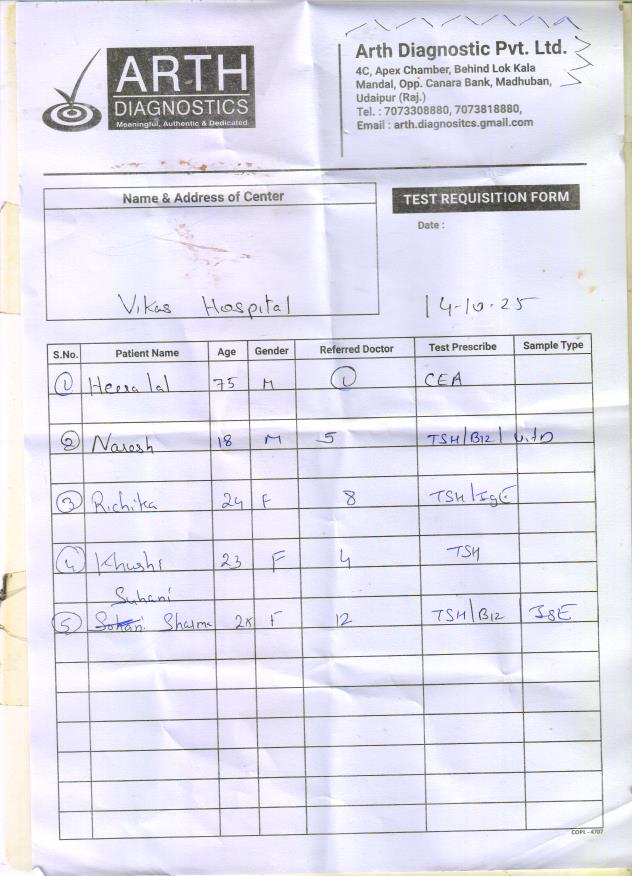 ARTH
DIAGNOSTICS
Meaningful, Authentic & Dedicated.
Arth Diagnostic Pvt. Ltd.
4C, Apex Chamber, Behind Lok Kala
Mandal, Opp. Canara Bank, Madhuban,
Udaipur (Raj.)
Tel. : 7073308880, 7073818880,
Email : arth.diagnositcs.gmail.com
Name & Address of Center
TEST REQUISITION FORM
Date :
Vikas Hospital
14-10-25
S.No. Patient Name Age Gender Referred Doctor Test Prescribe Sample Type
1 Heera lal 75 M 1 CEA
2 Naresh 18 M 5 TSH/B12/ Vit D
3 Richika 24 F 8 TSH/IgE
4 Khushi 23 F 4 TSH
Suhani
5 Sharma F 12 TSH/B12/ IgE
COPL - 4707